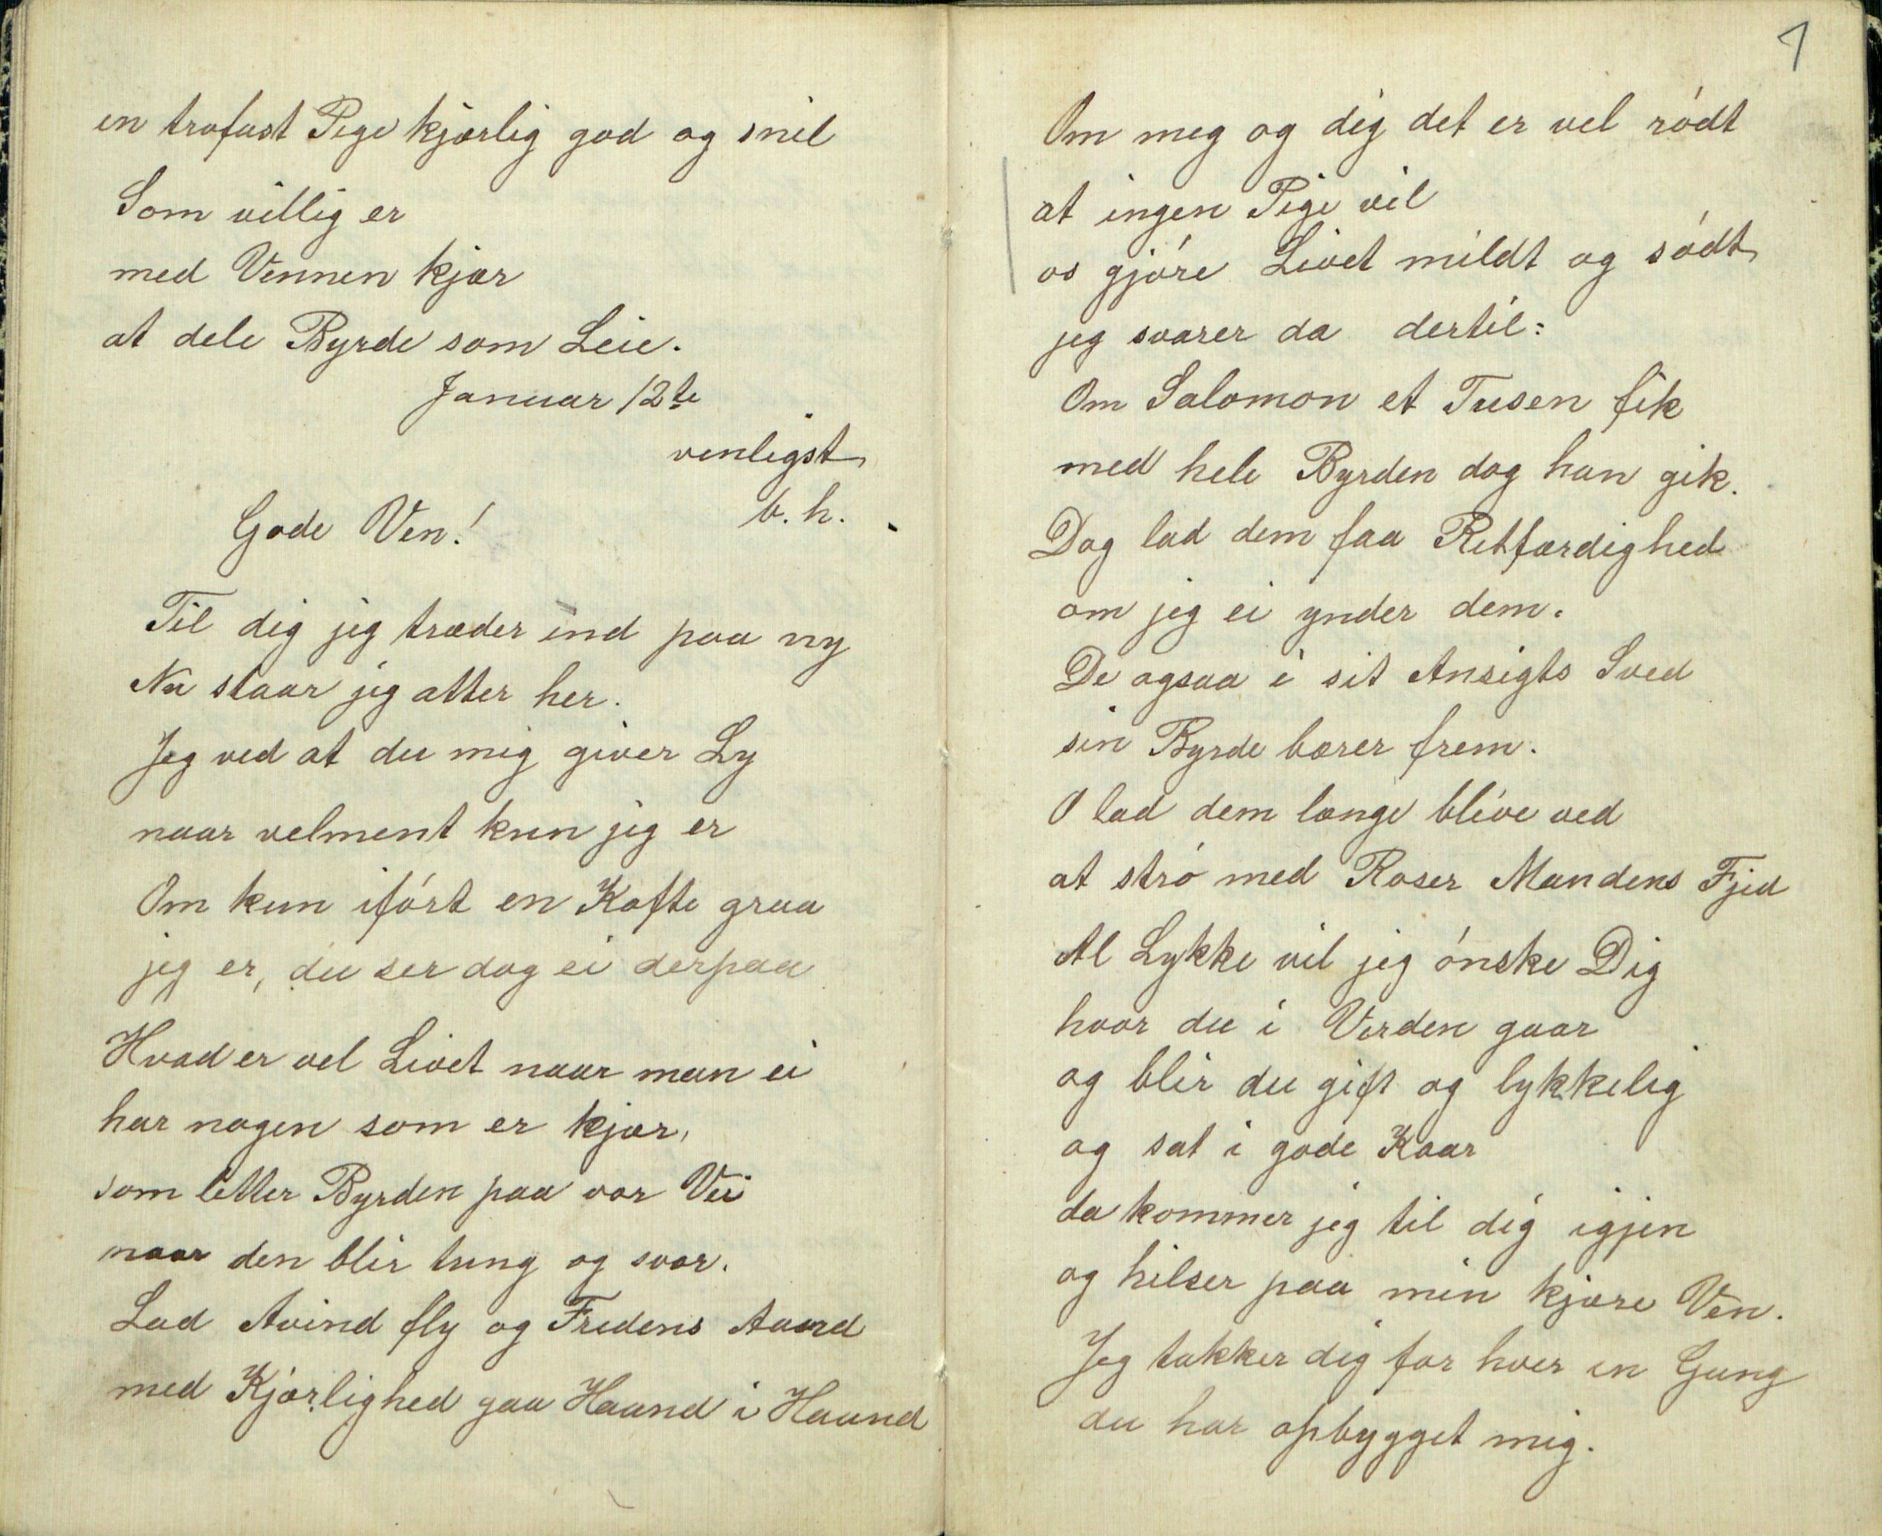 en trofast Pige kjærlig god og snil
Som villig er
med Vennen kjær
at dele Byrde som Leie.
Januar 12te
venligst
b. h.
Gode Ven!
Til dig jeg træder ind paa ny
Nu staar jeg atter her.
Jeg ved at du mig giver Ly
naar velment kun jeg er
Om kun iført en Kofte graa
jeg er, du ser dog ei derpaa
Hvad er vel Livet naar man ei
har nogen som er kjær,
som letter Byrden paa vor Vei
naar den blir tung og svær.
Lad Avind fly og Fredens Aand
med Kjærlighed gaa Haand i Haand
1
Om meg og dig det er vel rødt
at ingen Pige vil
os gjøre Livet mildt og sødt
jeg svarer da dertil:
Om Salomon et Tusen fik
med hele Byrden dog han gik.
Dog lad dem faa Retfærdighed
om jeg ei ynder dem.
De ogsaa i sit Ansigts Sved
sin Byrde bærer frem.
O lad dem længe blive ved
at strø med Roser Mandens Fjed
Al Lykke vil jeg ønske Dig
hvor du i Verden gaar
og blir du gift og lykkelig
og sat i gode Kaar
da kommer jeg til dig igjen
og hilser paa min kjære Ven.
Jeg takker dig for hver en Gang
du har opbygget mig.